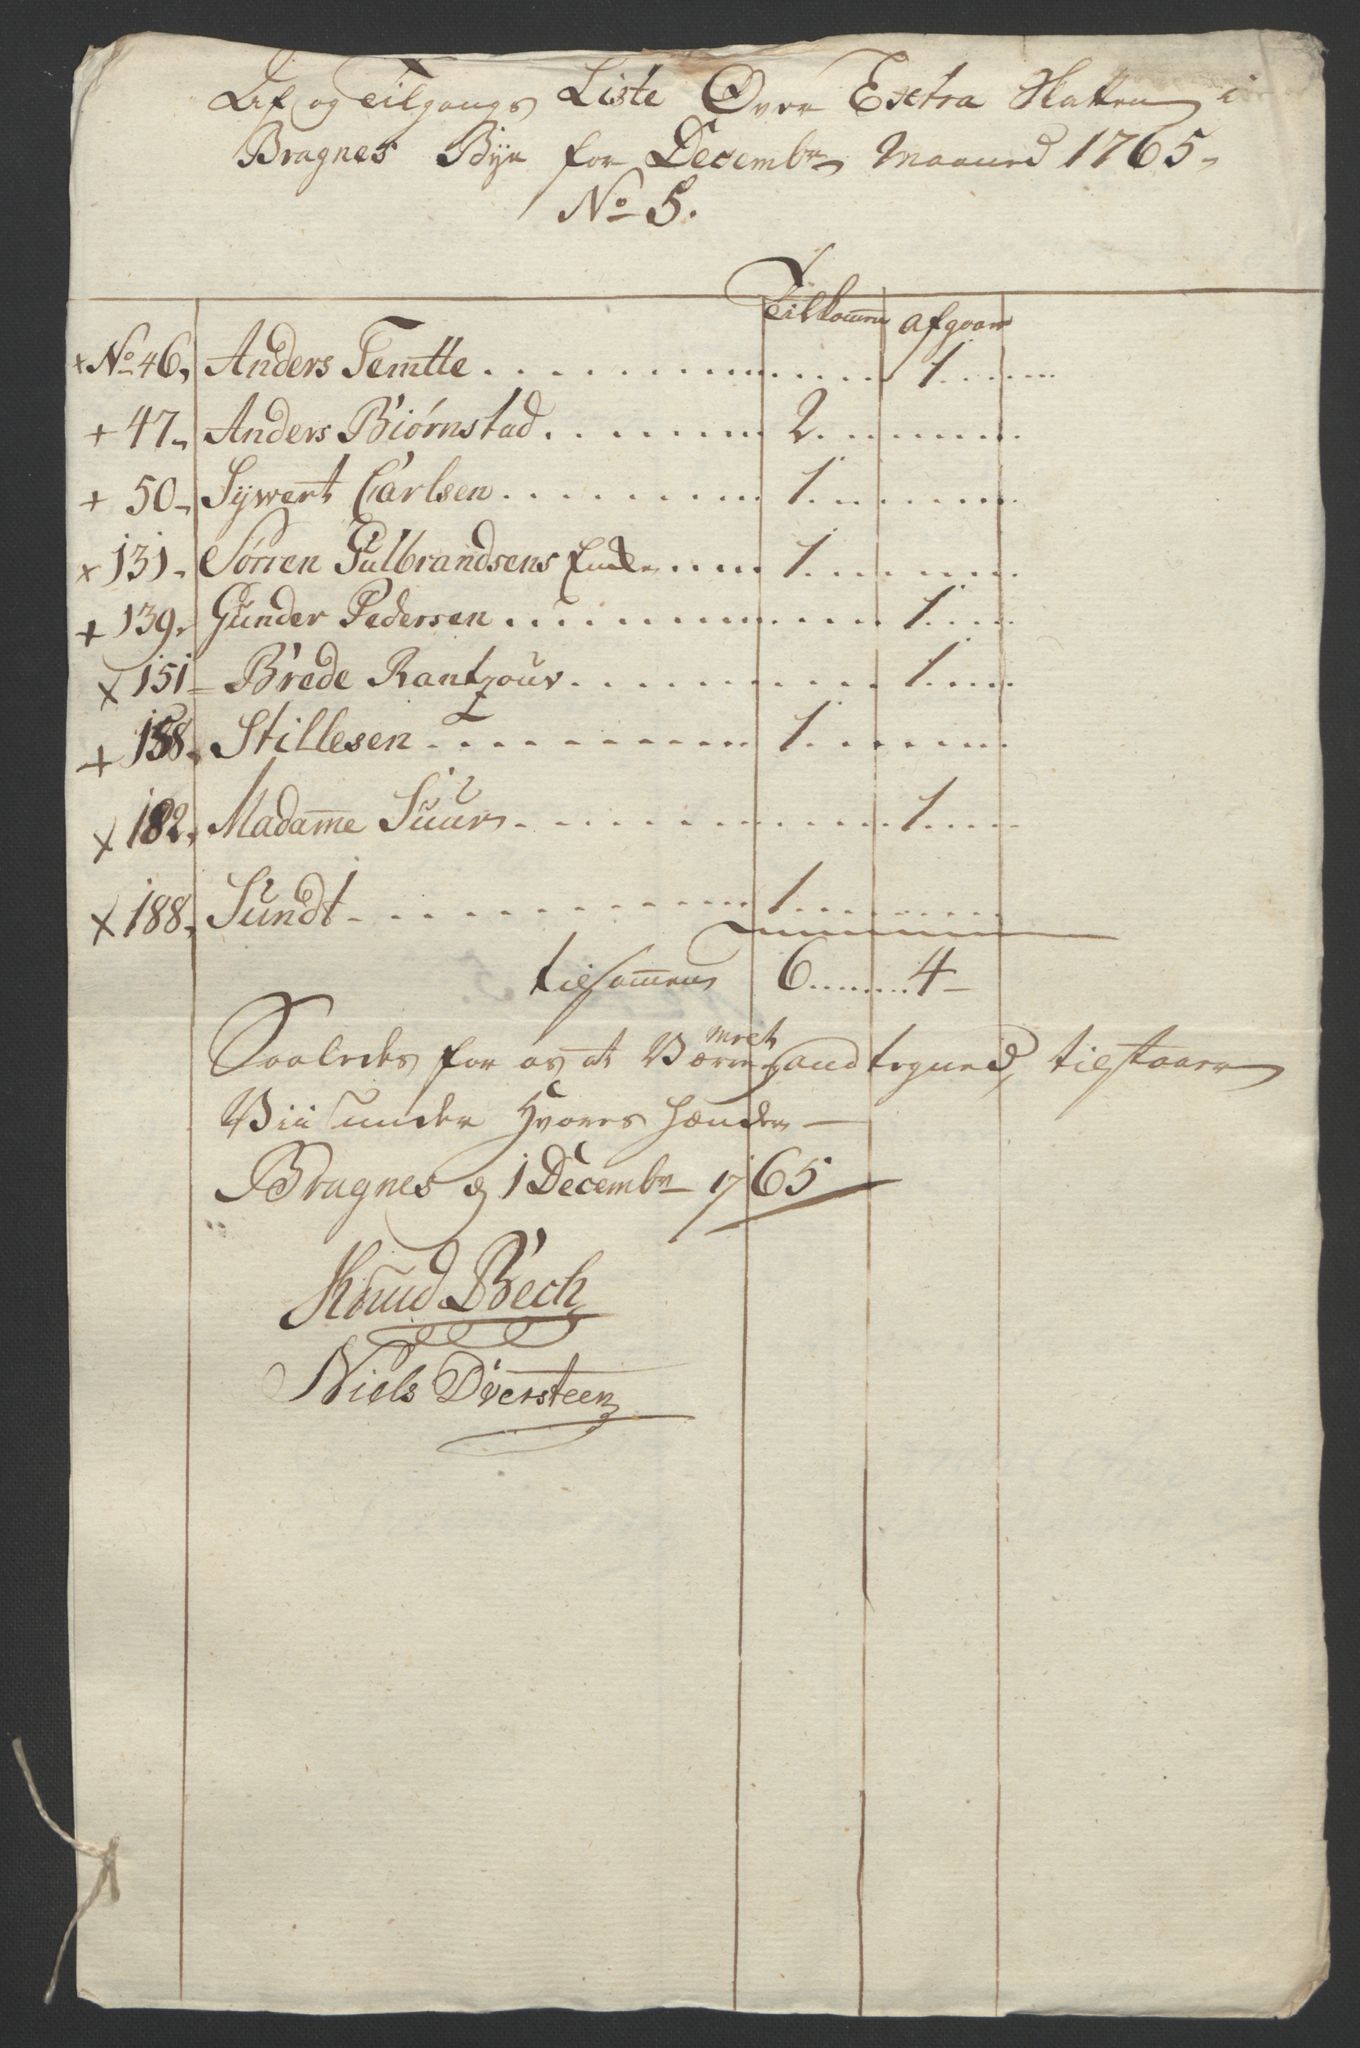 Af og Tilgangs Liste Over Extra Skatten i
Bragnes Bye for Decembr Maaned 1765
No 5.
Tilkomne afgaar
+ No 46, Anders Temtte 1
+ 47 Anders Biørnstad 2
+ 50 Sywert Carlsen 1
x 131 Sørren Gulbrandsens Enke 1
+ 139 Gunder Pedersen 1
x 151 Brede Rantzouv 1
+ 158 Stillesen 1
x 182 Madamme Suurs 1
x 188 Sundt 1
tilsammen 6 4
Saaledes for os at Være andtegned, tilstaaer
Vii under Hvores Hænder
Bragnes d 1 Decembr 1765
Knud Bech
Niels Oversteen